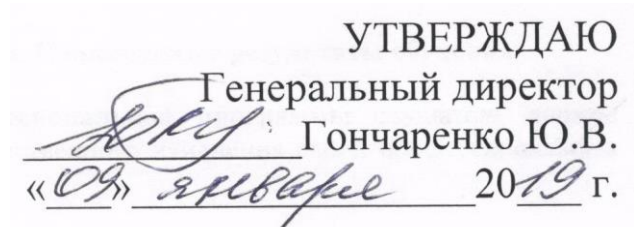 УТВЕРЖДАЮ
Генеральный директор
Гончаренко Ю.В.
«09» января 2019 г.